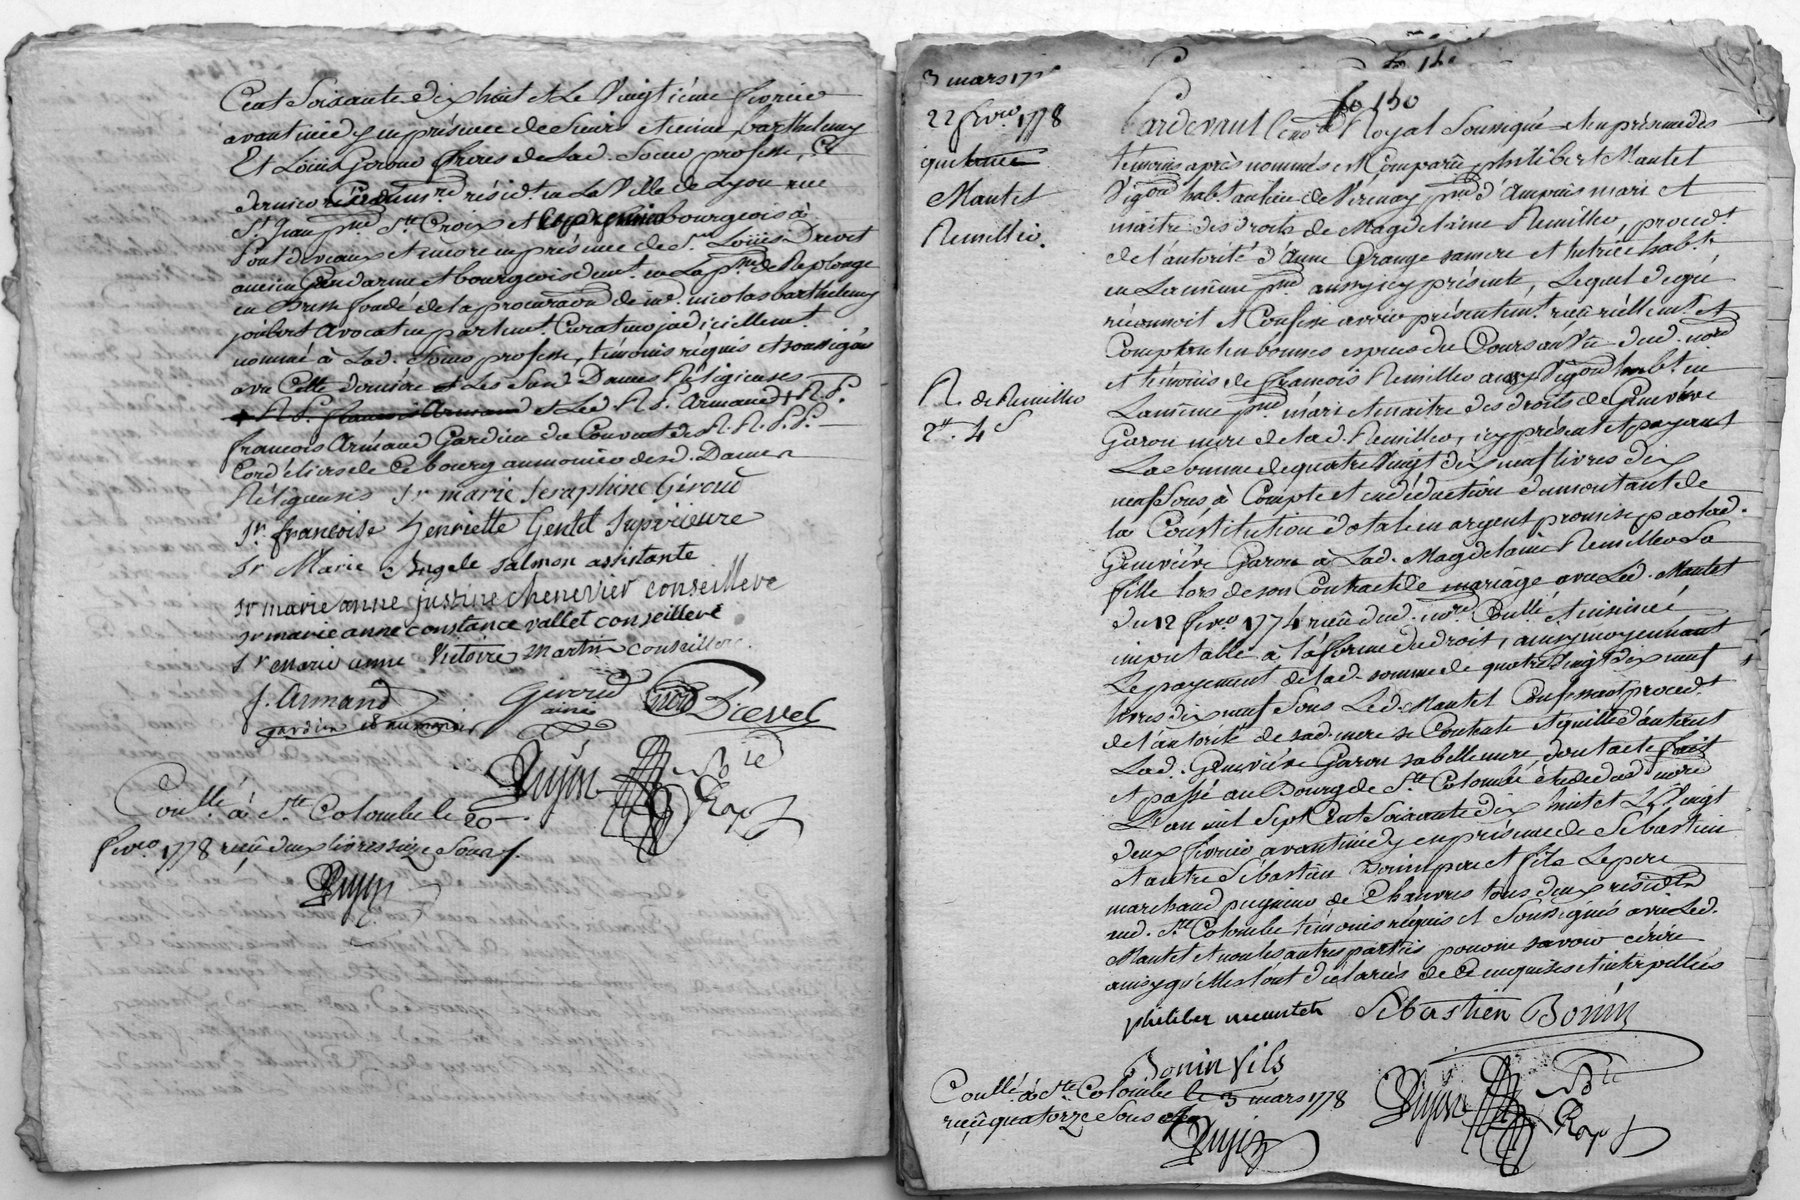 Cent Soixante dix huit et Le Vingtième fevrier
avant midy en présence de Sieurs Etienne barthelemy
Et Loüis Giroud freres de Lad. Soeur professe, Ce
dernier résidt. en La Ville de Lyon rue
St. Jean psse. Ste. Croix et bourgeois à
Pont de veaux et encore en présence de Sr. Loüis Drevet
ancien Gendarme et bourgeois demt. en La psse. de Replonge
en Bresse fondé de la procuraon de me. nicolas barthelemy
joubert Avocat en parlemt. Curateur judiciellemt.
nommé à Lad. Soeur professe, témoins réquis et soussignés
avec Cette dernière et Les Susd. Dames Réligieuses
R. P. francois Armand et Led. R. P. Armand + R. P.
françois Armand Gardien du Couvent des R. R. P. P.
Cordéliers de Ce bourg aumonier desd. Dames
Réligieuses Sr marie Seraphine Giroud
Sr. françoise henriette Gentet Supérieure
Sr Marie Angele Salmon assistante
Sr marie anne justine chenevier conseillere
Sr marie anne constance vallet conseillere
Sr Marie anne Victoire Martin conseillere
f. Armand Giroud Giroud Drevet
gardien et aumonier ainé
Dujin Nore
Royal
Coullé. à Ste. Colombe le 20
fevro. 1778 reçû deux livres seize Sous
Dujin
3 mars 1778
22 fevro. 1778
quittance
Mantet
Remillier.
fo 150
Pardevant Le nore Royal Soussigné et en présence des
témoins après nommés est Comparû philibert Mantet
Vigon habt. au lieu de Vérenay psse d'Ampuis mari et
maitre des droits de Magdelaine Remillier, procedt.
de l'autorité d'Anne Grange sa mere et hetrière habt.
en La même psse. aussy icy présente, Lequel de gré
réconnoit et Confesse avoir présentemt. reçû réellemt. et
Comptant en bonnes especes du Cours au Vû dud. nore
et témoins de françois Remillier aussy Vigon habt. en
La même psse mari et maitre des droits de Geneviéve
Garon mere de lad. Remillier, icy présent et payant
La Somme de quatre Vingt dix neuf livres dix
neuf Sous à Compte et en déduction du montant de
la Constitution dotale en argent promise par lad.
Geneviève Garon à Lad. Magdelaine Remillier Sa
fille lors de son Contract de mariage avec Led. Mantet
du 12 fevro. 1774 reçû dud. nore. Coullé. et insinué
imputable à la forme du droit, ainsy moyennant
Le payement de lad. somme de quatre Vingt dix neuf
livres dix neuf Sous Led. Mantet Confessant procedt.
de l'autorité de sad. mere se Contente et quitte d'autant
Lad. Geneviéve Garon sa belle mere dont acte fait
et passé au Bourg de Ste. Colombe étude dud. nore
L'an mil Sept Cent Soixante dix huit et Le Vingt
deux fevrier avant midy en présence de Sébastien
et autre Sébastien Bonin pere et fils Le pere
marchand peigneur de Chanvres tous deux résidts
aud. Ste. Colombe témoins réquis et Soussignés avec Led.
Mantet et non les autres parties pour ne savoir écrire
ainsy qu'Elles l'ont déclarés de Ce enquises et interpellées
R. de Remillier
2tt. 4s
philiber mantet Sébastien Bonin
Bonin fils
Coullé. à Ste. Colombe le 3 mars 1778
reçû quatorze Sous
Dujin Nore
Royal
Dujin